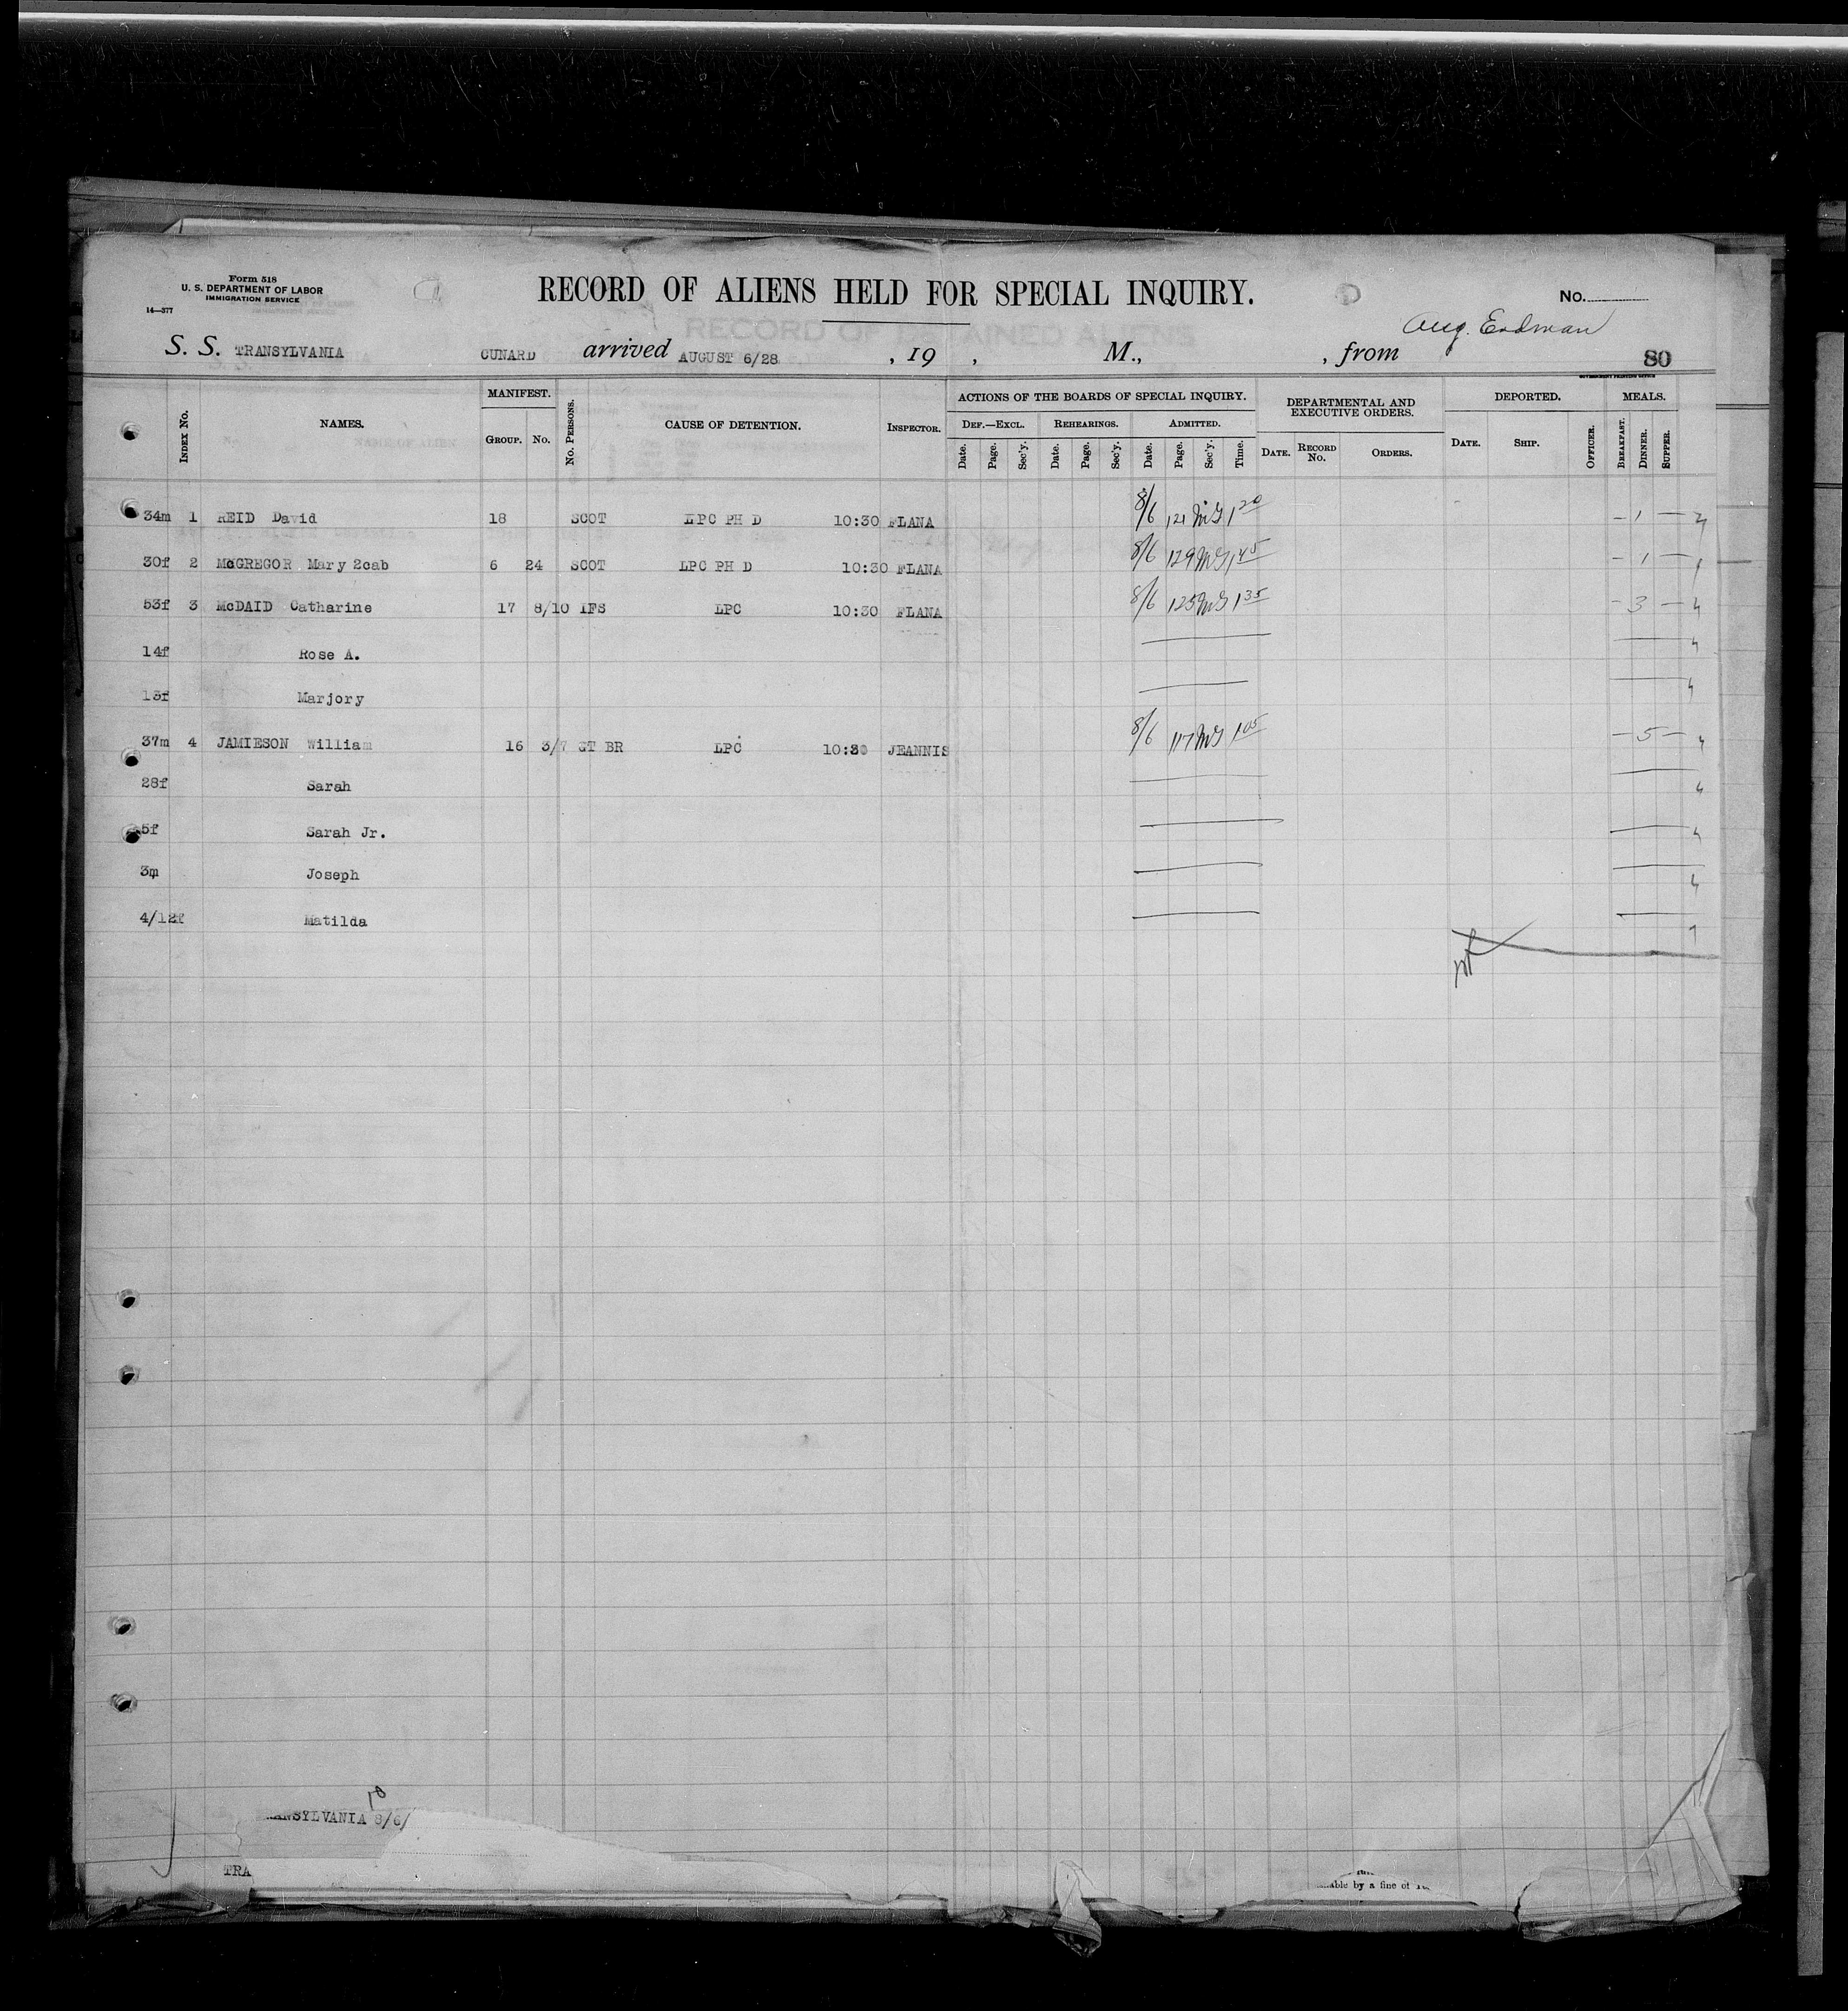 Form 518
U. S. DEPARTMENT OF LABOR
IMMIGRATION SERVICE
14—377
RECORD OF ALIENS HELD FOR SPECIAL INQUIRY.
No.
Aug. Erdman
S. S. TRANSYLVANIA CUNARD arrived AUGUST 6/28 , 19 , M., , from 80
GOVERNMENT PRINTING OFFICE
Index No. NAMES. MANIFEST. Group. No. No. Persons. CAUSE OF DETENTION. Inspector. ACTIONS OF THE BOARDS OF SPECIAL INQUIRY. DEPARTMENTAL AND EXECUTIVE ORDERS. DEPORTED. MEALS.
Def.—Excl. Rehearings. Admitted.
Date. Page. Sec'y. Date. Page. Sec'y. Date. Page. Sec'y. Time. Date. Record No. Orders. Date. Ship. Officer. Breakfast. Dinner. Supper.
34m 1 REID David 18 SCOT LPC PH D 10:30 FLANA 8/6 121 MG 1 20 — 1 —
30f 2 McGREGOR Mary 2cab 6 24 SCOT LPC PH D 10:30 FLANA 8/6 129 MG 1 45 — 1 —
53f 3 McDAID Catharine 17 8/10 IFS LPC 10:30 FLANA 8/6 125 MG 1 35 — 3 —
14f Rose A.
13f Marjory
37m 4 JAMIESON William 16 3/7 GT BR LPC 10:30 JEANNIS 8/6 117 MG 1 05 — 5 —
28f Sarah
5f Sarah Jr.
3m Joseph
4/12f Matilda
RANSYLVANIA 8/6/
TRA
able by a fine of